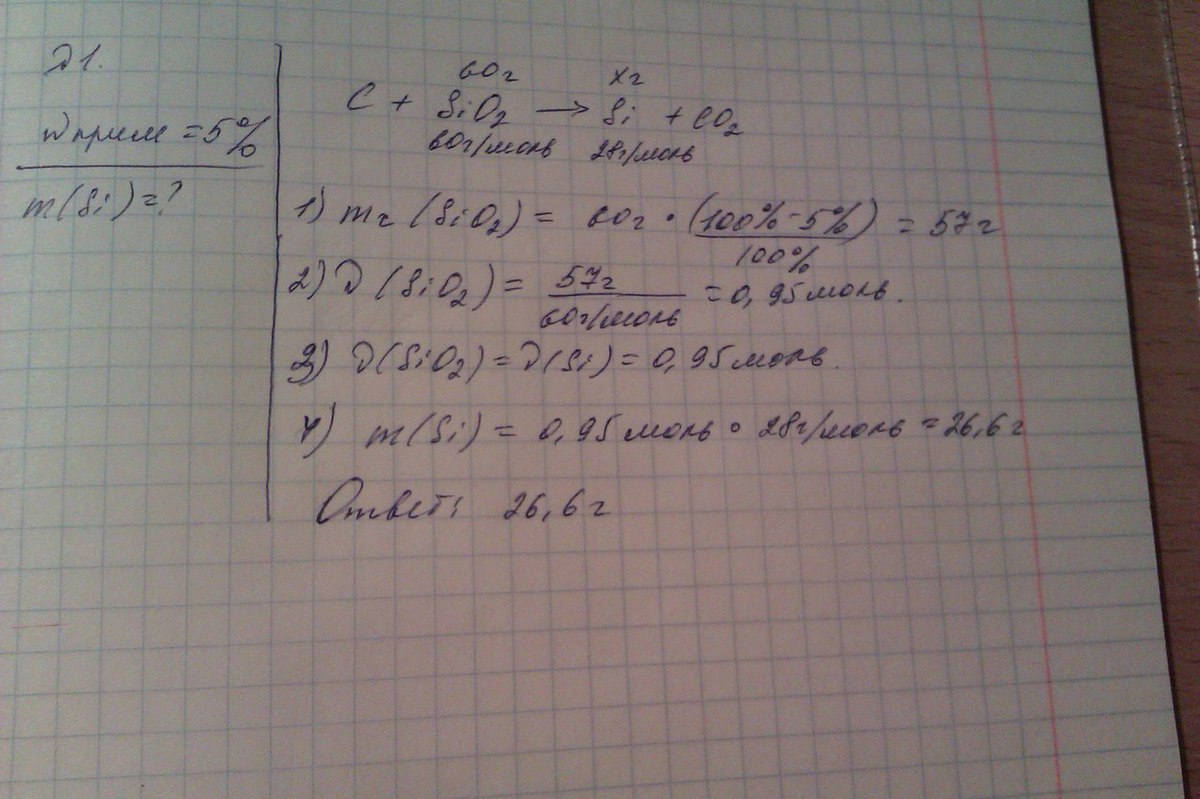 д1.
w прим = 5%
m(Si) = ?
60г xг
C + SiO2 → Si + CO2
60г/моль 28г/моль
1) mч (SiO2) = 60г • (100% - 5%) / 100% = 57г
2) ϑ (SiO2) = 57г / 60г/моль = 0,95 моль.
3) ϑ(SiO2) = ϑ(Si) = 0,95 моль.
4) m(Si) = 0,95 моль • 28г/моль = 26,6г
Ответ: 26,6г